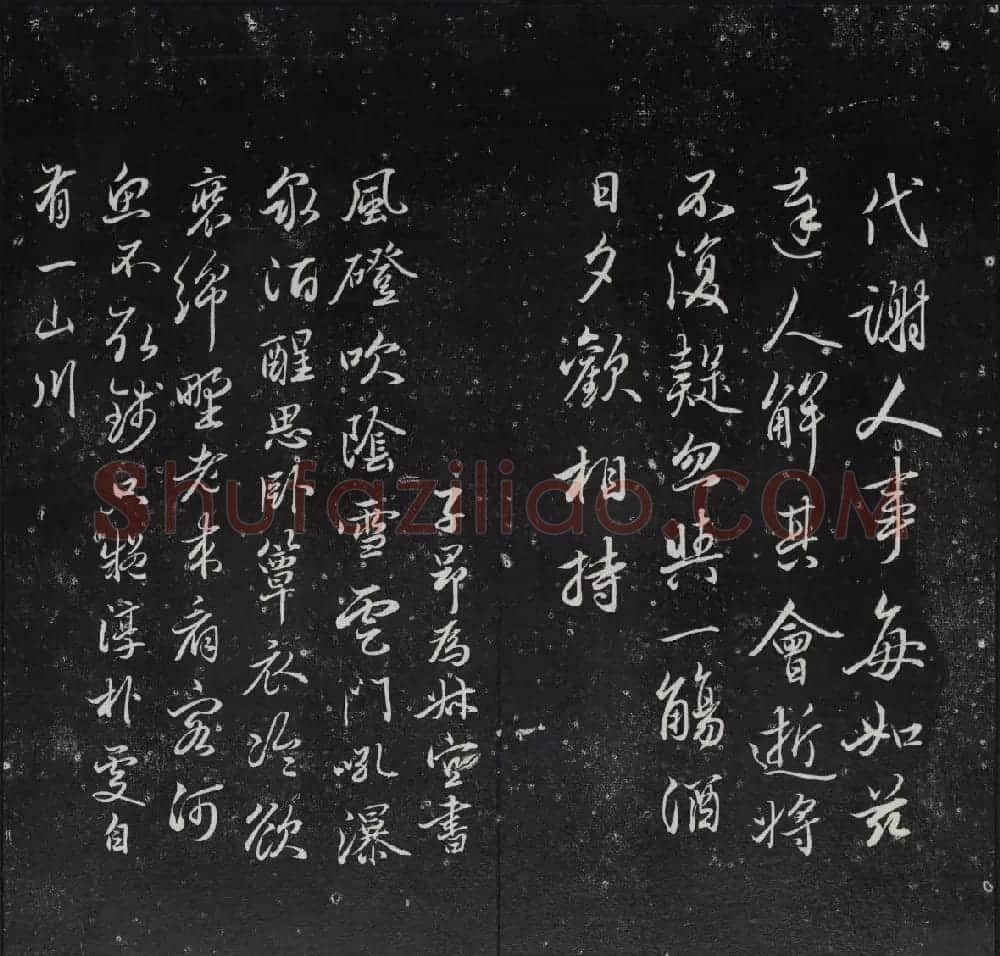 代謝人事每如茲
達人解其會逝將
不復疑忽與一觴酒
日夕歡相持
子昂為書
風磴吹陰雪雲門吼瀑
泉酒醒思臥簟衣冷欲
裝綿野老來看客河
魚不取錢只疑淳朴處自
有一山川
Shufaziliao.COM